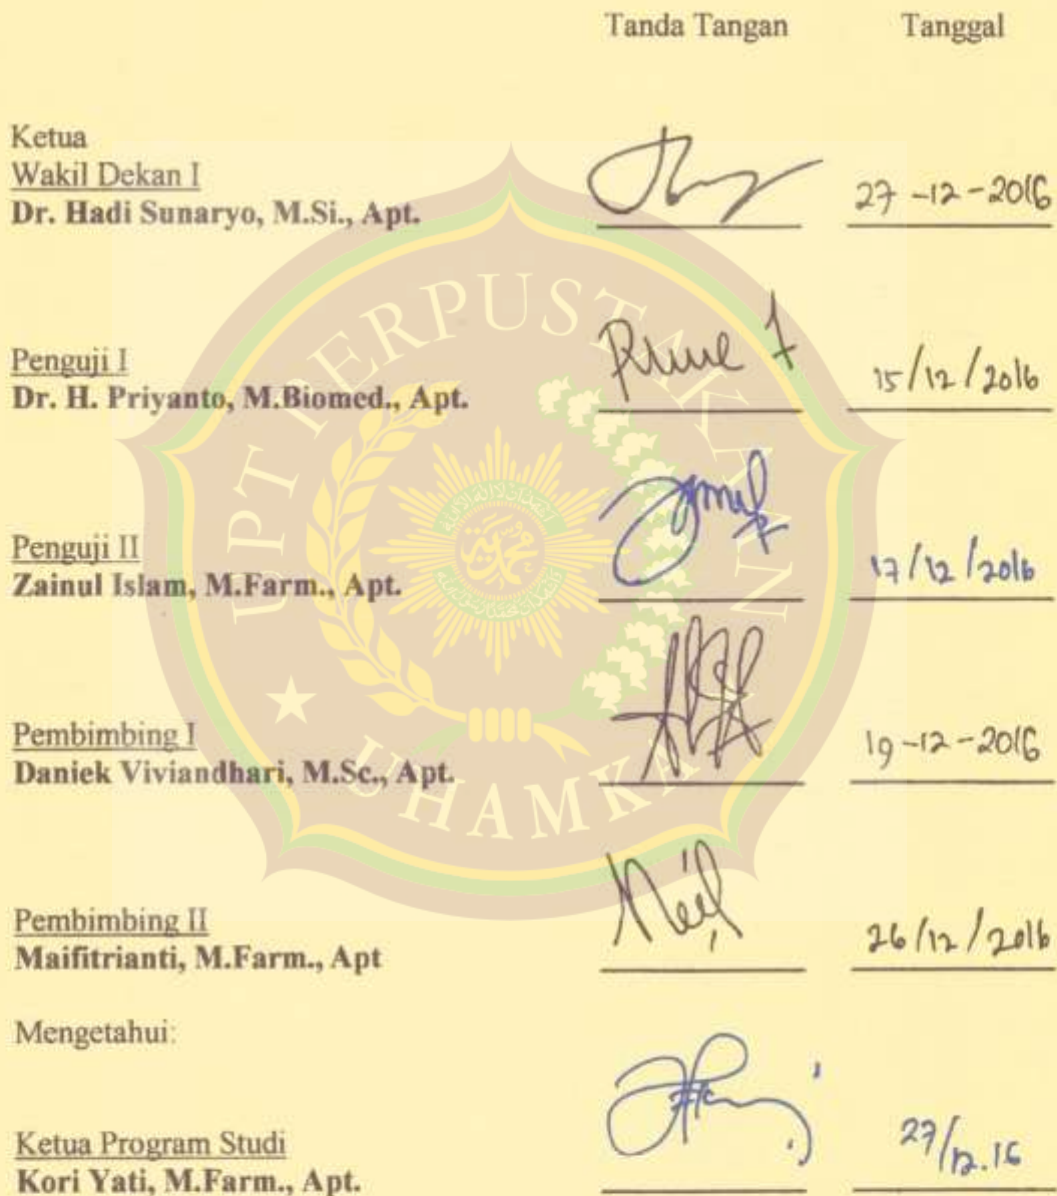 Tanda Tangan Tanggal
Ketua
Wakil Dekan I
Dr. Hadi Sunaryo, M.Si., Apt. 27-12-2016
Penguji I
Dr. H. Priyanto, M.Biomed., Apt. 15/12/2016
Penguji II
Zainul Islam, M.Farm., Apt. 17/12/2016
Pembimbing I
Daniek Viviandhari, M.Sc., Apt. 19-12-2016
Pembimbing II
Maifitrianti, M.Farm., Apt 26/12/2016
Mengetahui:
Ketua Program Studi
Kori Yati, M.Farm., Apt. 27/12.16
UPT PERPUSTAKAAN
UHAMKA